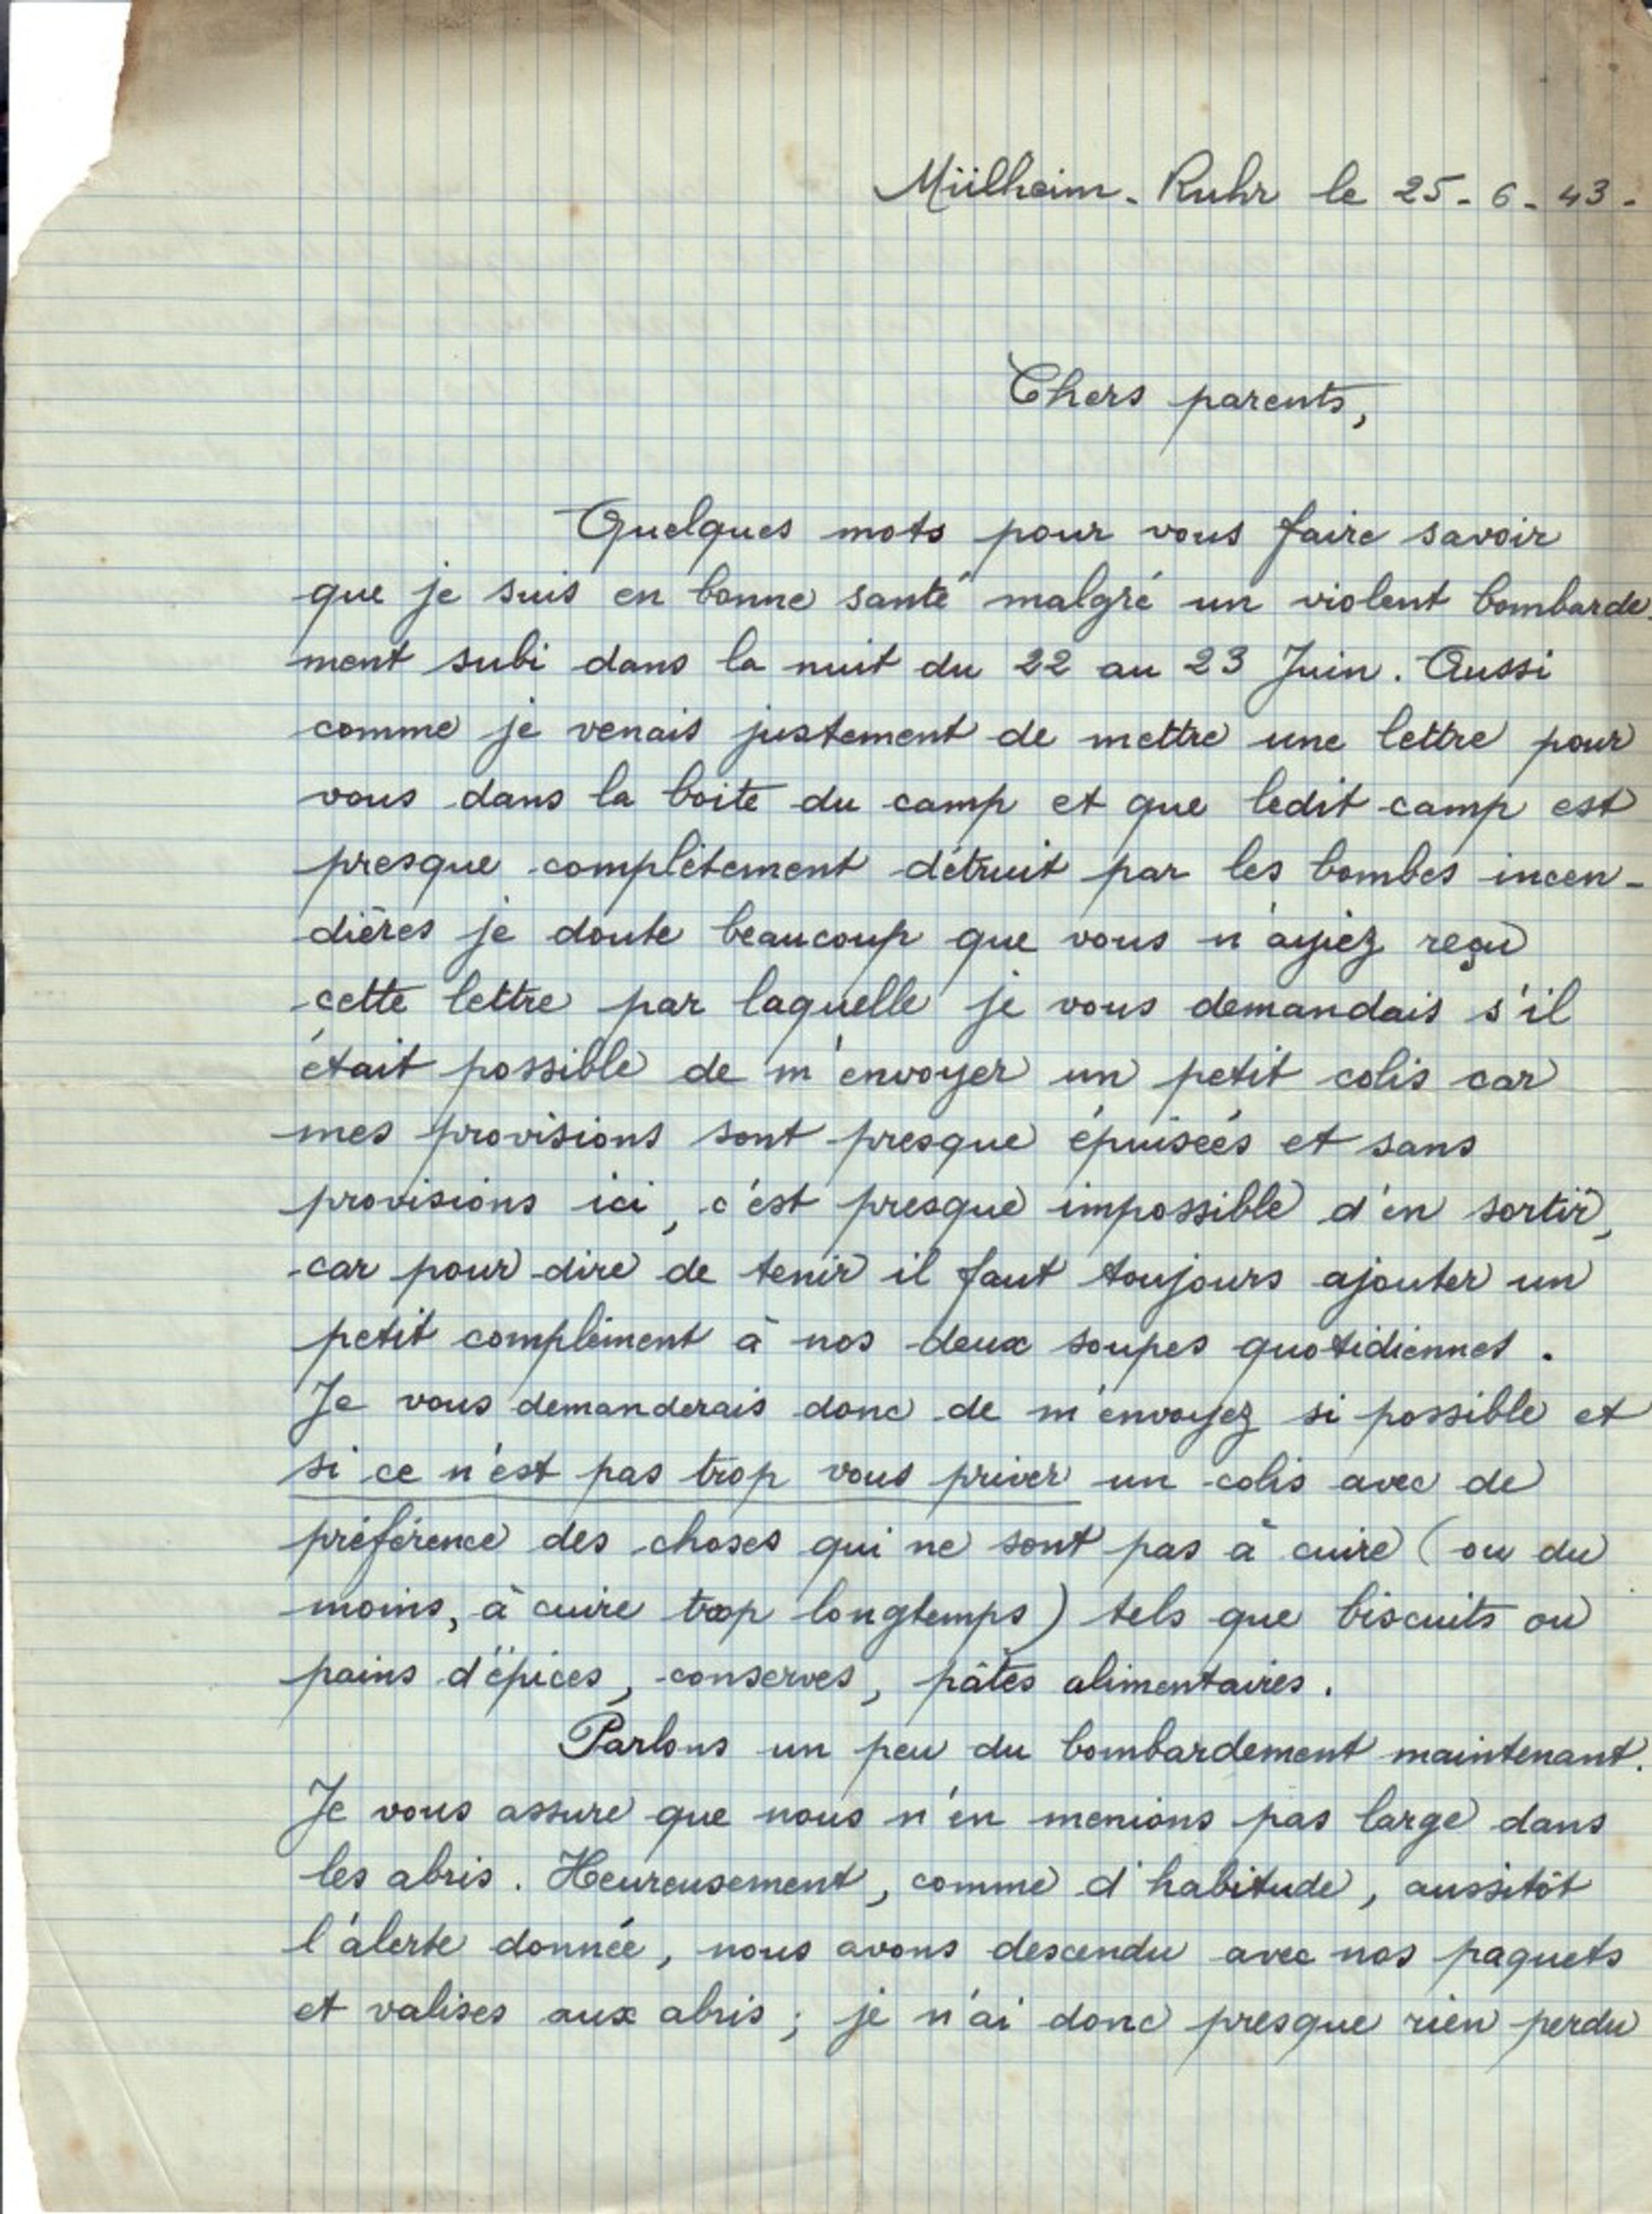 Mülheim-Ruhr le 25-6-43-
Chers parents,
Quelques mots pour vous faire savoir
que je suis en bonne santé malgré un violent bombarde-
ment subi dans la nuit du 22 au 23 Juin. Aussi
comme je venais justement de mettre une lettre pour
vous dans la boite du camp et que ledit camp est
presque complètement détruit par les bombes incen-
dières je doute beaucoup que vous n'ayiez reçu
cette lettre par laquelle je vous demandais s'il
était possible de m'envoyer un petit colis car
mes provisions sont presque épuisées et sans
provisions ici, c'est presque impossible d'en sortir,
car pour dire de tenir il faut toujours ajouter un
petit complément à nos deux soupes quotidiennes.
Je vous demanderais donc de m'envoyez si possible et
si ce n'est pas trop vous priver un colis avec de
préférence des choses qui ne sont pas à cuire (ou du
moins, à cuire trop longtemps) tels que biscuits ou
pains d'épices, conserves, pâtes alimentaires.
Parlons un peu du bombardement maintenant.
Je vous assure que nous n'en menions pas large dans
les abris. Heureusement, comme d'habitude, aussitôt
l'alerte donnée, nous avons descendu avec nos paquets
et valises aux abris; je n'ai donc presque rien perdu